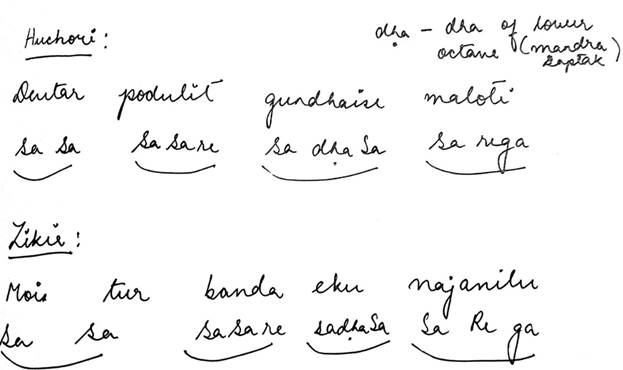 Huchori:
dḥa - dha of lower
octane (mandra
saptak)
Deutar podulit gundhaise maloti
sa sa sa sa re sa dḥa sa sa rega
Zikir:
Moi tur banda eku najanilu
sa sa sa sa re sadḥasa sa Re ga